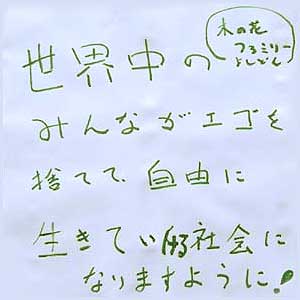 木の花
ファミリー
よしどん
世界中の
みんながエゴを
捨てて、自由に
生きていける社会に
なりますように!